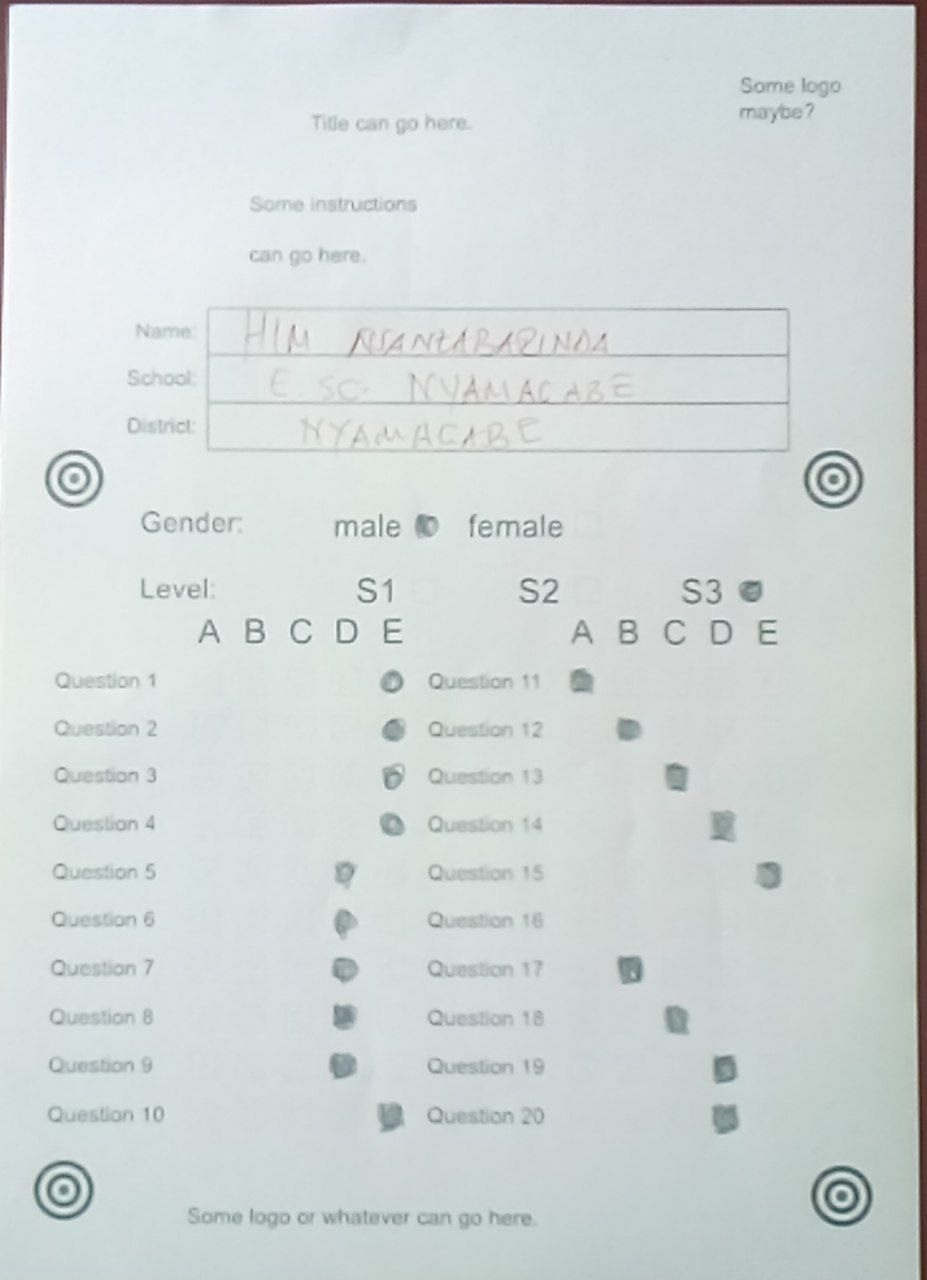 Some logo
maybe?
Title can go here.
Some instructions
can go here.
Name: HIM NSANZABARINDA
School: E. SC. NYAMAGABE
District: NYAMAGABE
Gender: male female
Level: S1 S2 S3
A B C D E A B C D E
Question 1 Question 11
Question 2 Question 12
Question 3 Question 13
Question 4 Question 14
Question 5 Question 15
Question 6 Question 16
Question 7 Question 17
Question 8 Question 18
Question 9 Question 19
Question 10 Question 20
Some logo or whatever can go here.